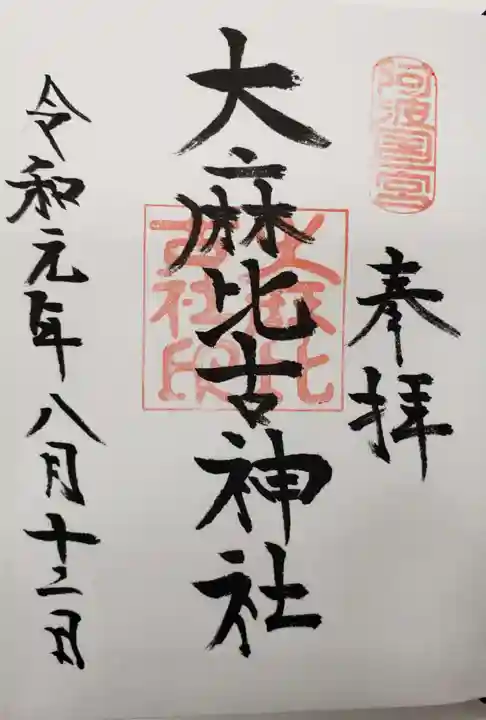 阿波國一宮
奉拝
大麻比古神社
大麻比
古社印
令和元年八月十二日